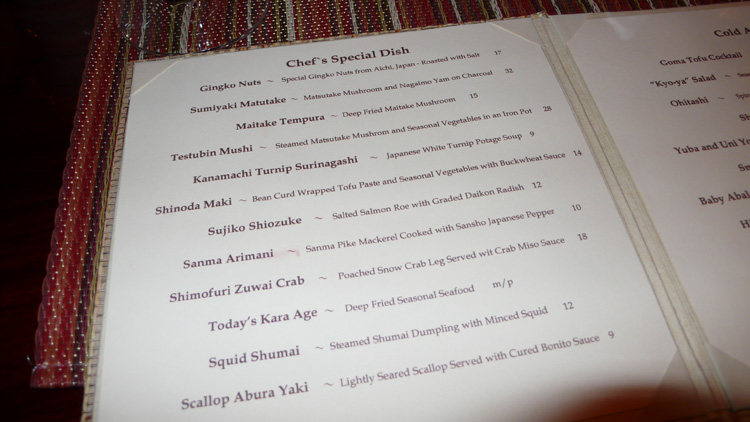 Chef's Special Dish
Gingko Nuts ~ Special Gingko Nuts from Aichi, Japan - Roasted with Salt 17
Sumiyaki Matutake ~ Matsutake Mushroom and Nagaimo Yam on Charcoal 32
Maitake Tempura ~ Deep Fried Maitake Mushroom 15
Testubin Mushi ~ Steamed Matsutake Mushrom and Seasonal Vegetables in an Iron Pot 28
Kanamachi Turnip Surinagashi ~ Japanese White Turnip Potage Soup 9
Shinoda Maki ~ Bean Curd Wrapped Tofu Paste and Seasonal Vegetables with Buckwheat Sauce 14
Sujiko Shiozuke ~ Salted Salmon Roe with Graded Daikon Radish 12
Sanma Arimani ~ Sanma Pike Mackerel Cooked with Sansho Japanese Pepper 10
Shimofuri Zuwai Crab ~ Poached Snow Crab Leg Served wit Crab Miso Sauce 18
Today's Kara Age ~ Deep Fried Seasonal Seafood m/p
Squid Shumai ~ Steamed Shumai Dumpling with Minced Squid 12
Scallop Abura Yaki ~ Lightly Seared Scallop Served with Cured Bonito Sauce 9
Cold
Goma Tofu Cocktail
"Kyo-ya" Salad ~
Ohitashi ~
Yuba and Uni
Baby